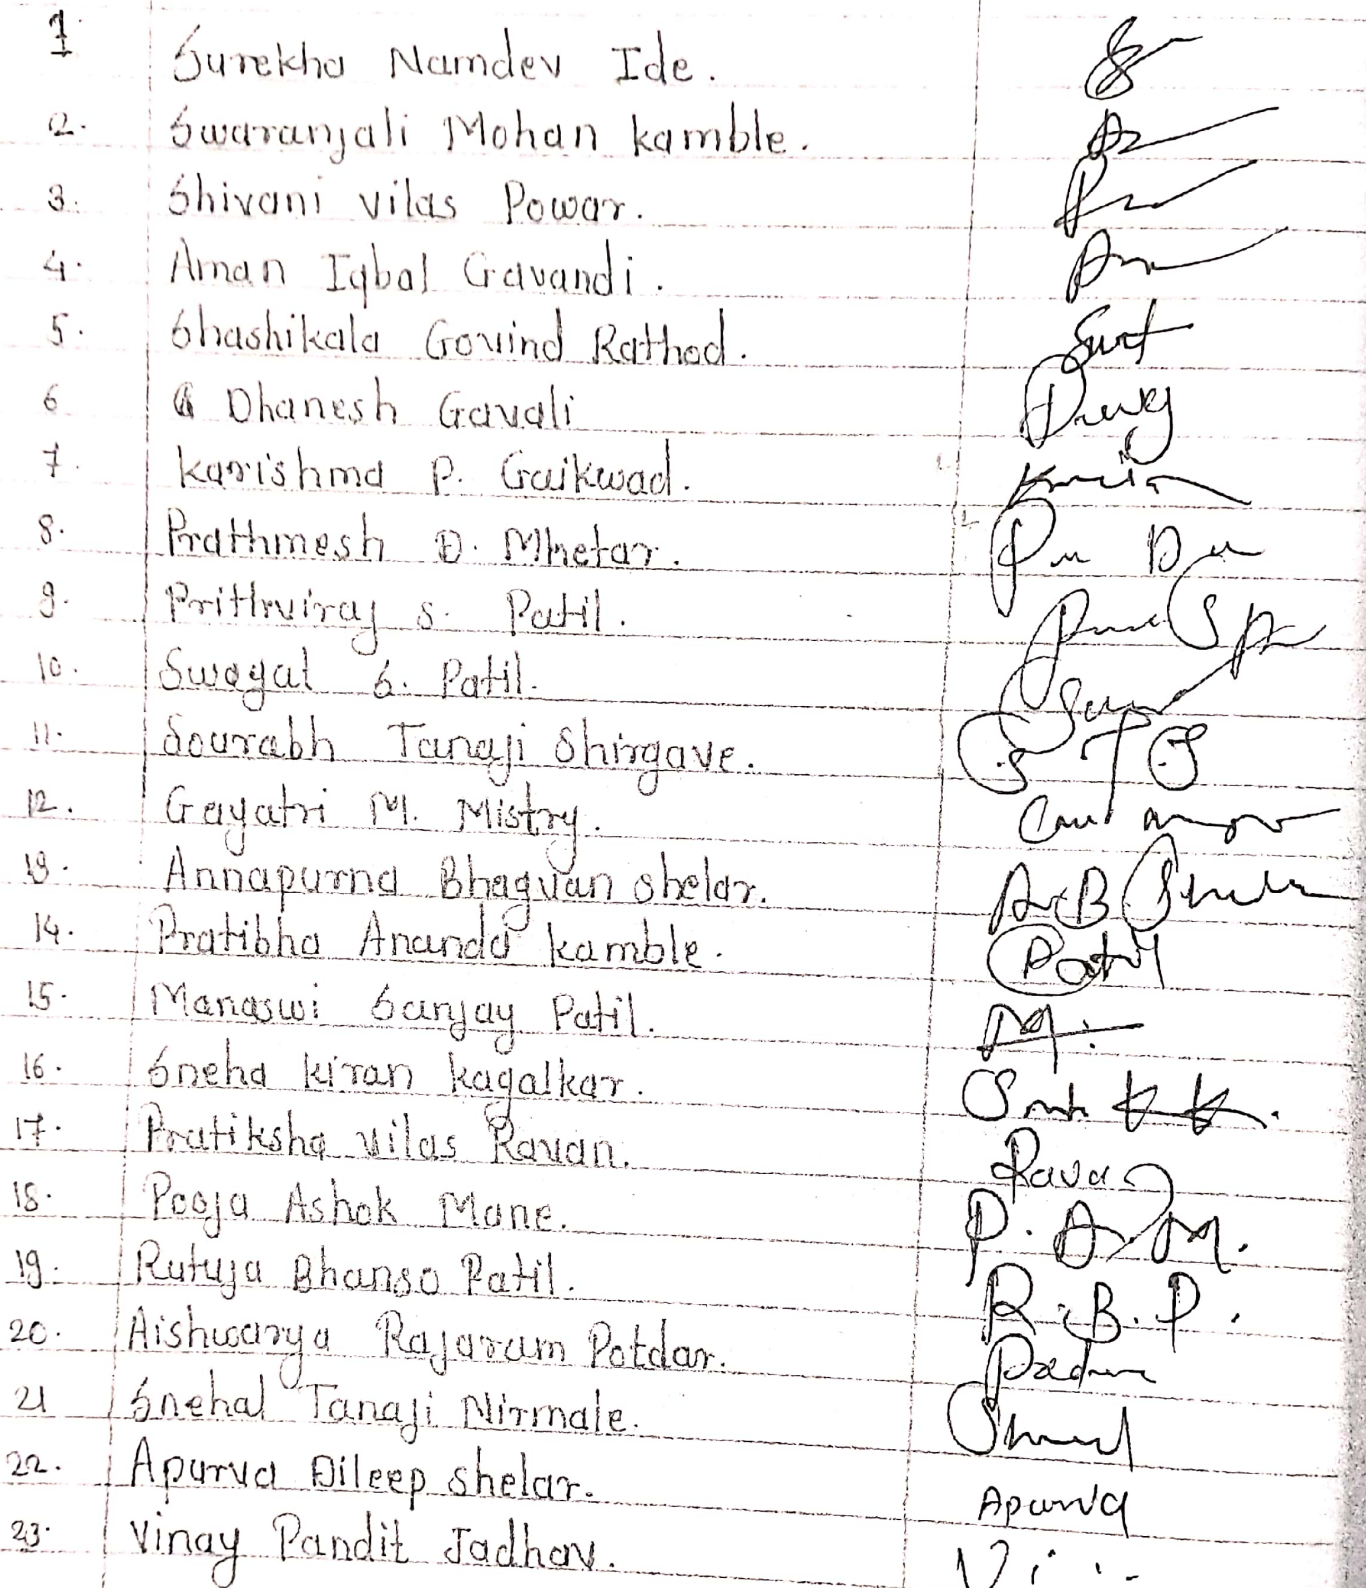 1 Surekha Namdev Ide.
2. Swaranjali Mohan kamble.
3. Shivani vilas Powar.
4. Aman Iqbal Gavandi.
5. Shashikala Govind Rathod.
6 Dhanesh Gavali
7. karishma P. Gaikwad.
8. Prathmesh D. Mhetar.
9. Prithviraj s. Patil.
10. Swagat S. Patil.
11. Sourabh Tanaji Shirgave. S T S
12. Gayatri M. Mistry.
13. Annapurna Bhagvan shelar. A.B
14. Pratibha Ananda kamble. Patil
15. Manaswi Sanjay Patil. M.
16. Sneha kiran kagalkar.
17. Pratiksha vilas Ravan. Ravan
18. Pooja Ashok Mane. P. A. M.
19. Rutuja Bhanso Patil. R. B. P.
20. Aishwarya Rajaram Potdar.
21 Snehal Tanaji Nirmale.
22. Apurva Dileep shelar. Apurva
23. Vinay Pandit Jadhav.